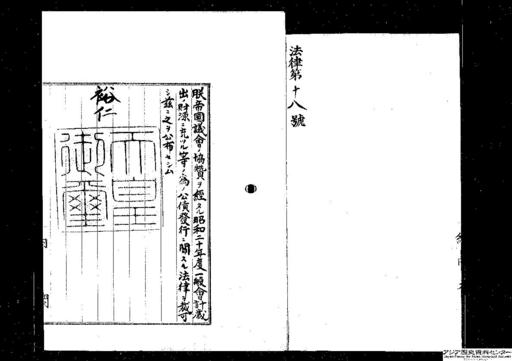 法律第十八號
朕帝國議會ノ協贊ヲ經タル昭和二十年度一般會計歳
出ノ財源ニ充ツル等ノ爲ノ公債發行ニ關スル法律ヲ裁可
シ茲ニ之ヲ公布セシム
裕仁
天皇
御璽
アジア歴史資料センター